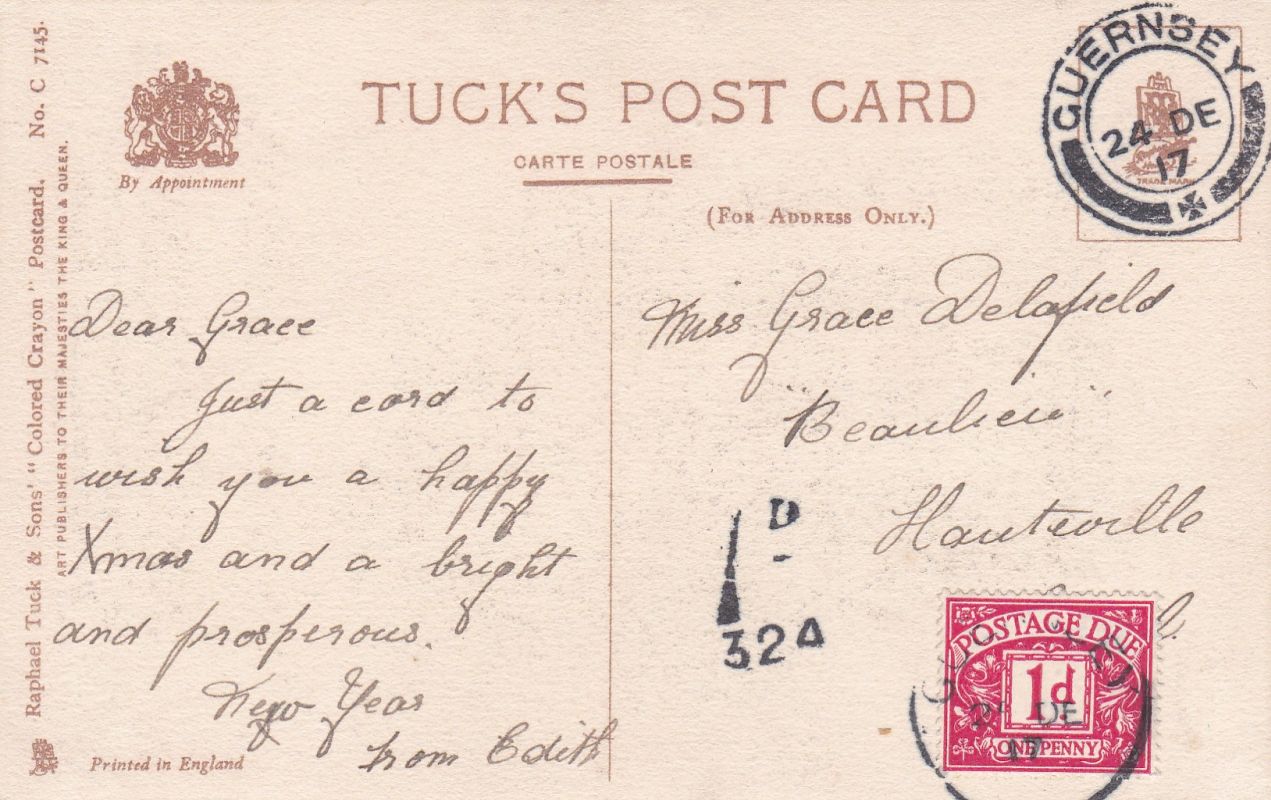 Raphael Tuck & Sons' "Colored Crayon" Postcard. No. C 7145.
ART PUBLISHERS TO THEIR MAJESTIES THE KING & QUEEN.
By Appointment
TUCK'S POST CARD
CARTE POSTALE
(FOR ADDRESS ONLY.)
GUERNSEY
24 DE
17
TRADE MARK
Dear Grace
Just a card to
wish you a happy
Xmas and a bright
and prosperous.
New Year
from Edith
Miss Grace Delafield
"Beaulieu"
Hauteville
1D
324
POSTAGE DUE
1d
ONE PENNY
DE
17
Printed in England